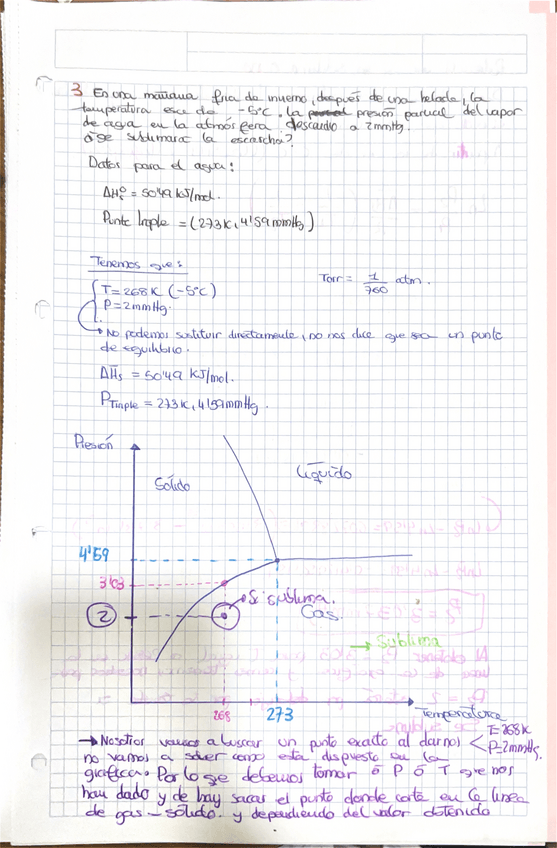 3 En una mañana fria de invierno, después de una helada, la
temperatura era de -5ºC, la presión parcial del vapor
de agua en la atmósfera descendio a 2mmHg.
¿Se sublimará la escarcha?
Datos para el agua:
ΔHsº = 50'49 kJ/mol.
Punto triple = (273K, 4'59mmHg)
Tenemos que:
T=268K (-5ºC)
Torr = 1/760 atm.
P=2mmHg.
No podemos sustituir directamente, no nos dice que sea un punto
de equilibrio.
ΔHs = 50'49 KJ/mol.
PTriple = 273K, 4'59mmHg.
Presión
Sólido
Líquido
4'59
3'03
2
Si sublima.
Gas.
→ Sublima
268
273
Temperatura
→ Nosotros vamos a buscar un punto exacto al darnos T=268K
P=2mmHg.
no vamos a saber como esta dispuesto en la
gráfica. Por lo que debemos tomar ó P ó T que nos
han dado y de hay sacar el punto donde corta en la linea
de gas - sólido. y dependiendo del valor obtenido